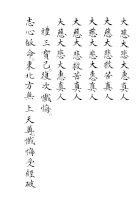 大慈大悲大惠真人
大慈大悲救苦真人
大慈大悲大惠真人
大慈大悲救苦真人
大慈大悲大惠真人
禮三寶已復次懺悔
志心皈命東北方無上天尊懺悔受經破